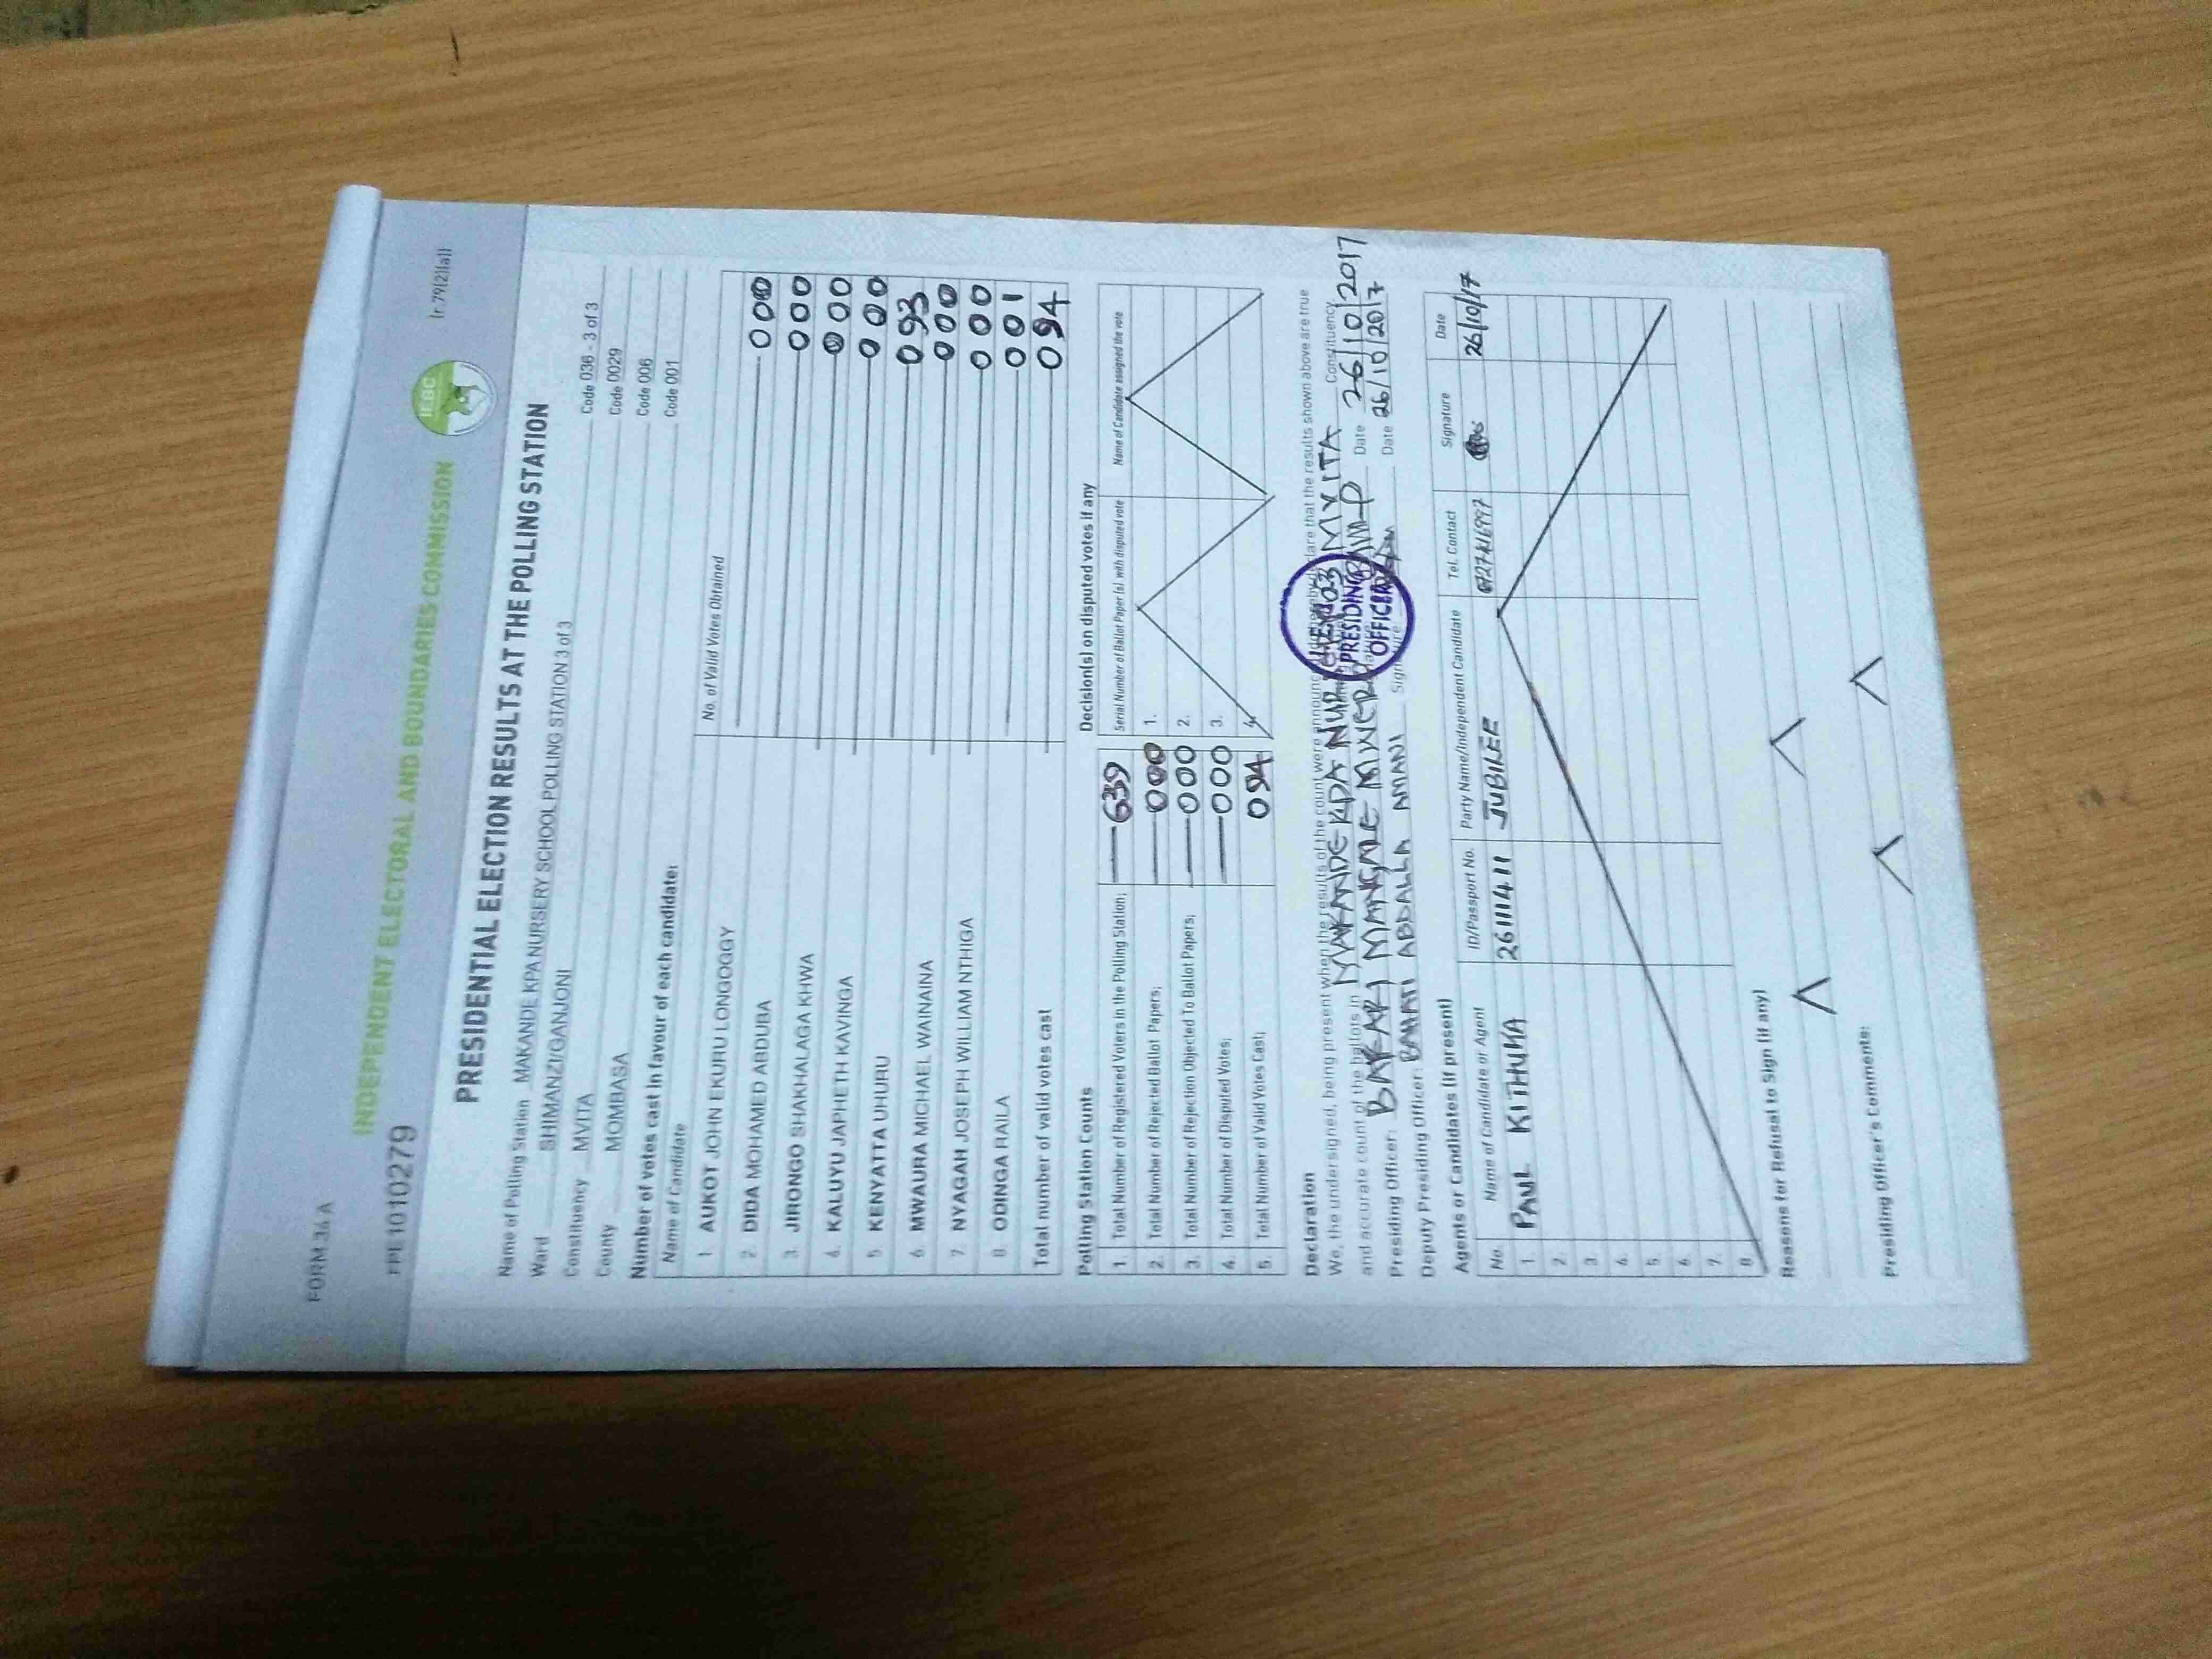 FORM 34 A
(r.79(2)(a))
IEBC
INDEPENDENT ELECTORAL AND BOUNDARIES COMMISSION
FPE1010279
PRESIDENTIAL ELECTION RESULTS AT THE POLLING STATION
Name of Polling Station MAKANDE KPA NURSERY SCHOOL POLLING STATION 3 of 3 Code 036 - 3 of 3
Ward SHIMANZI/GANJONI Code 0029
Constituency MVITA Code 006
County MOMBASA Code 001
Number of votes cast in favour of each candidate:
Name of Candidate No. of Valid Votes Obtained
1. AUKOT JOHN EKURU LONGOGGY 000
2. DIDA MOHAMED ABDUBA 000
3. JIRONGO SHAKHALAGA KHWA 000
4. KALUYU JAPHETH KAVINGA 000
5. KENYATTA UHURU 093
6. MWAURA MICHAEL WAINAINA 000
7. NYAGAH JOSEPH WILLIAM NTHIGA 000
8. ODINGA RAILA 001
Total number of valid votes cast 094
Polling Station Counts
1. Total Number of Registered Voters in the Polling Station; 639
2. Total Number of Rejected Ballot Papers; 000
3. Total Number of Rejection Objected To Ballot Papers; 000
4. Total Number of Disputed Votes; 000
5. Total Number of Valid Votes Cast; 094
Decision(s) on disputed votes if any
Serial Number of Ballot Paper (s) with disputed vote Name of Candidate assigned the vote
1.
2.
3.
4.
Declaration
We, the undersigned, being present when the results of the count were announced, do hereby declare that the results shown above are true
and accurate count of the ballots in MAKANDE KPA NUR MVITA Constituency
Presiding Officer: BAKARI Date 26/10/2017
Deputy Presiding Officer: BAHATI ABDALLA AMANI Signature Date 26/10/2017
PRESIDING
OFFICER
Agents or Candidates (if present)
No. Name of Candidate or Agent ID/Passport No. Party Name/Independent Candidate Tel. Contact Signature Date
1. PAUL KITHUKA 26111411 JUBILEE 26/10/17
2.
3.
4.
5.
6.
7.
8.
Reasons for Refusal to Sign (if any)
Presiding Officer's Comments: